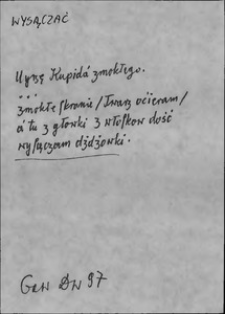 WYSĄCZAĆ
Uyrzę Kupidá zmokłego.
...
zmokłe skronie / Twarz ocieram /
á tu z głowki z włoskow dość
wysączam dżdżowki.
Gaw Dw 97